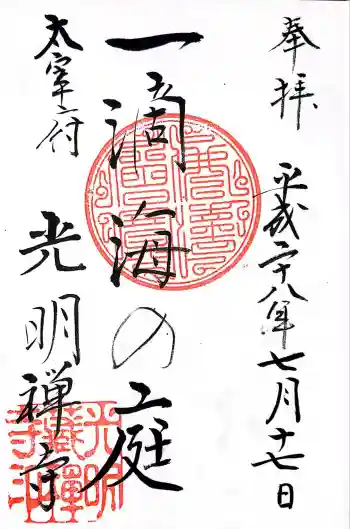 奉拝
平成二十八年七月十七日
一滴海の庭
太宰府
光明禅寺
光明禅寺